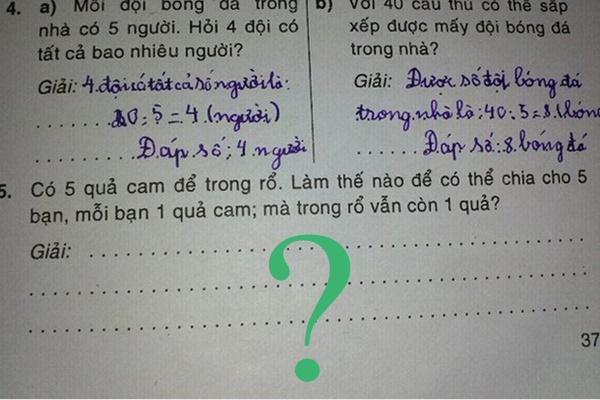 4. a) Mỗi đội bóng đá trong
nhà có 5 người. Hỏi 4 đội có
tất cả bao nhiêu người?
Giải: 4 đội có tất cả số người là:
20 : 5 = 4 (người)
Đáp số: 4 người
b) Với 40 cầu thủ có thể sắp
xếp được mấy đội bóng đá
trong nhà?
Giải: Được số đội bóng đá
trong nhà là: 40 : 5 = 8 (bóng
Đáp số: 8 bóng đá
5. Có 5 quả cam để trong rổ. Làm thế nào để có thể chia cho 5
bạn, mỗi bạn 1 quả cam; mà trong rổ vẫn còn 1 quả?
Giải:
?
37